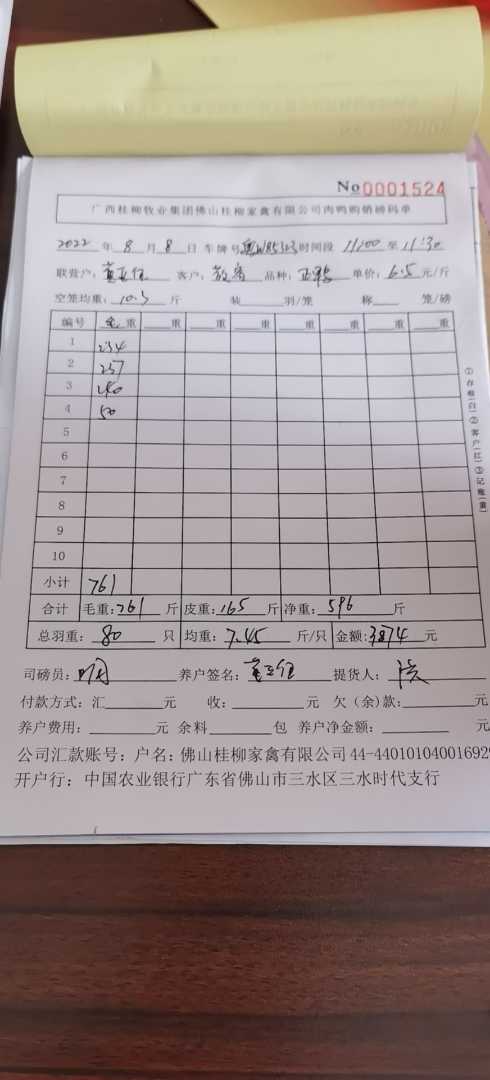 No 0001524
广西桂柳牧业集团佛山桂柳家禽有限公司肉鸭购销磅码单
2022 年 8 月 8 日 车牌号 时间段 11:00 至 11:30
联营户: 客户: 品种: 正鸭 单价: 6.5 元/斤
空笼均重: 10.3 斤 装 羽/笼 称 笼/磅
编号 毛重 重 重 重 重 重 重 重
1 234
2 237
3 240
4 50
5
6
7
8
9
10
小计 761
合计 毛重: 761 斤 皮重: 165 斤 净重: 596 斤
总羽重: 80 只 均重: 7.45 斤/只 金额: 3874 元
司磅员: 养户签名: 提货人:
付款方式: 汇 元 收: 元 欠(余)款: 元
养户费用: 元 余料 包 养户净金额: 元
公司汇款账号: 户名: 佛山桂柳家禽有限公司 44-440101040016929
开户行: 中国农业银行广东省佛山市三水区三水时代支行
①存根(白)②客户(红)③记账(黄)